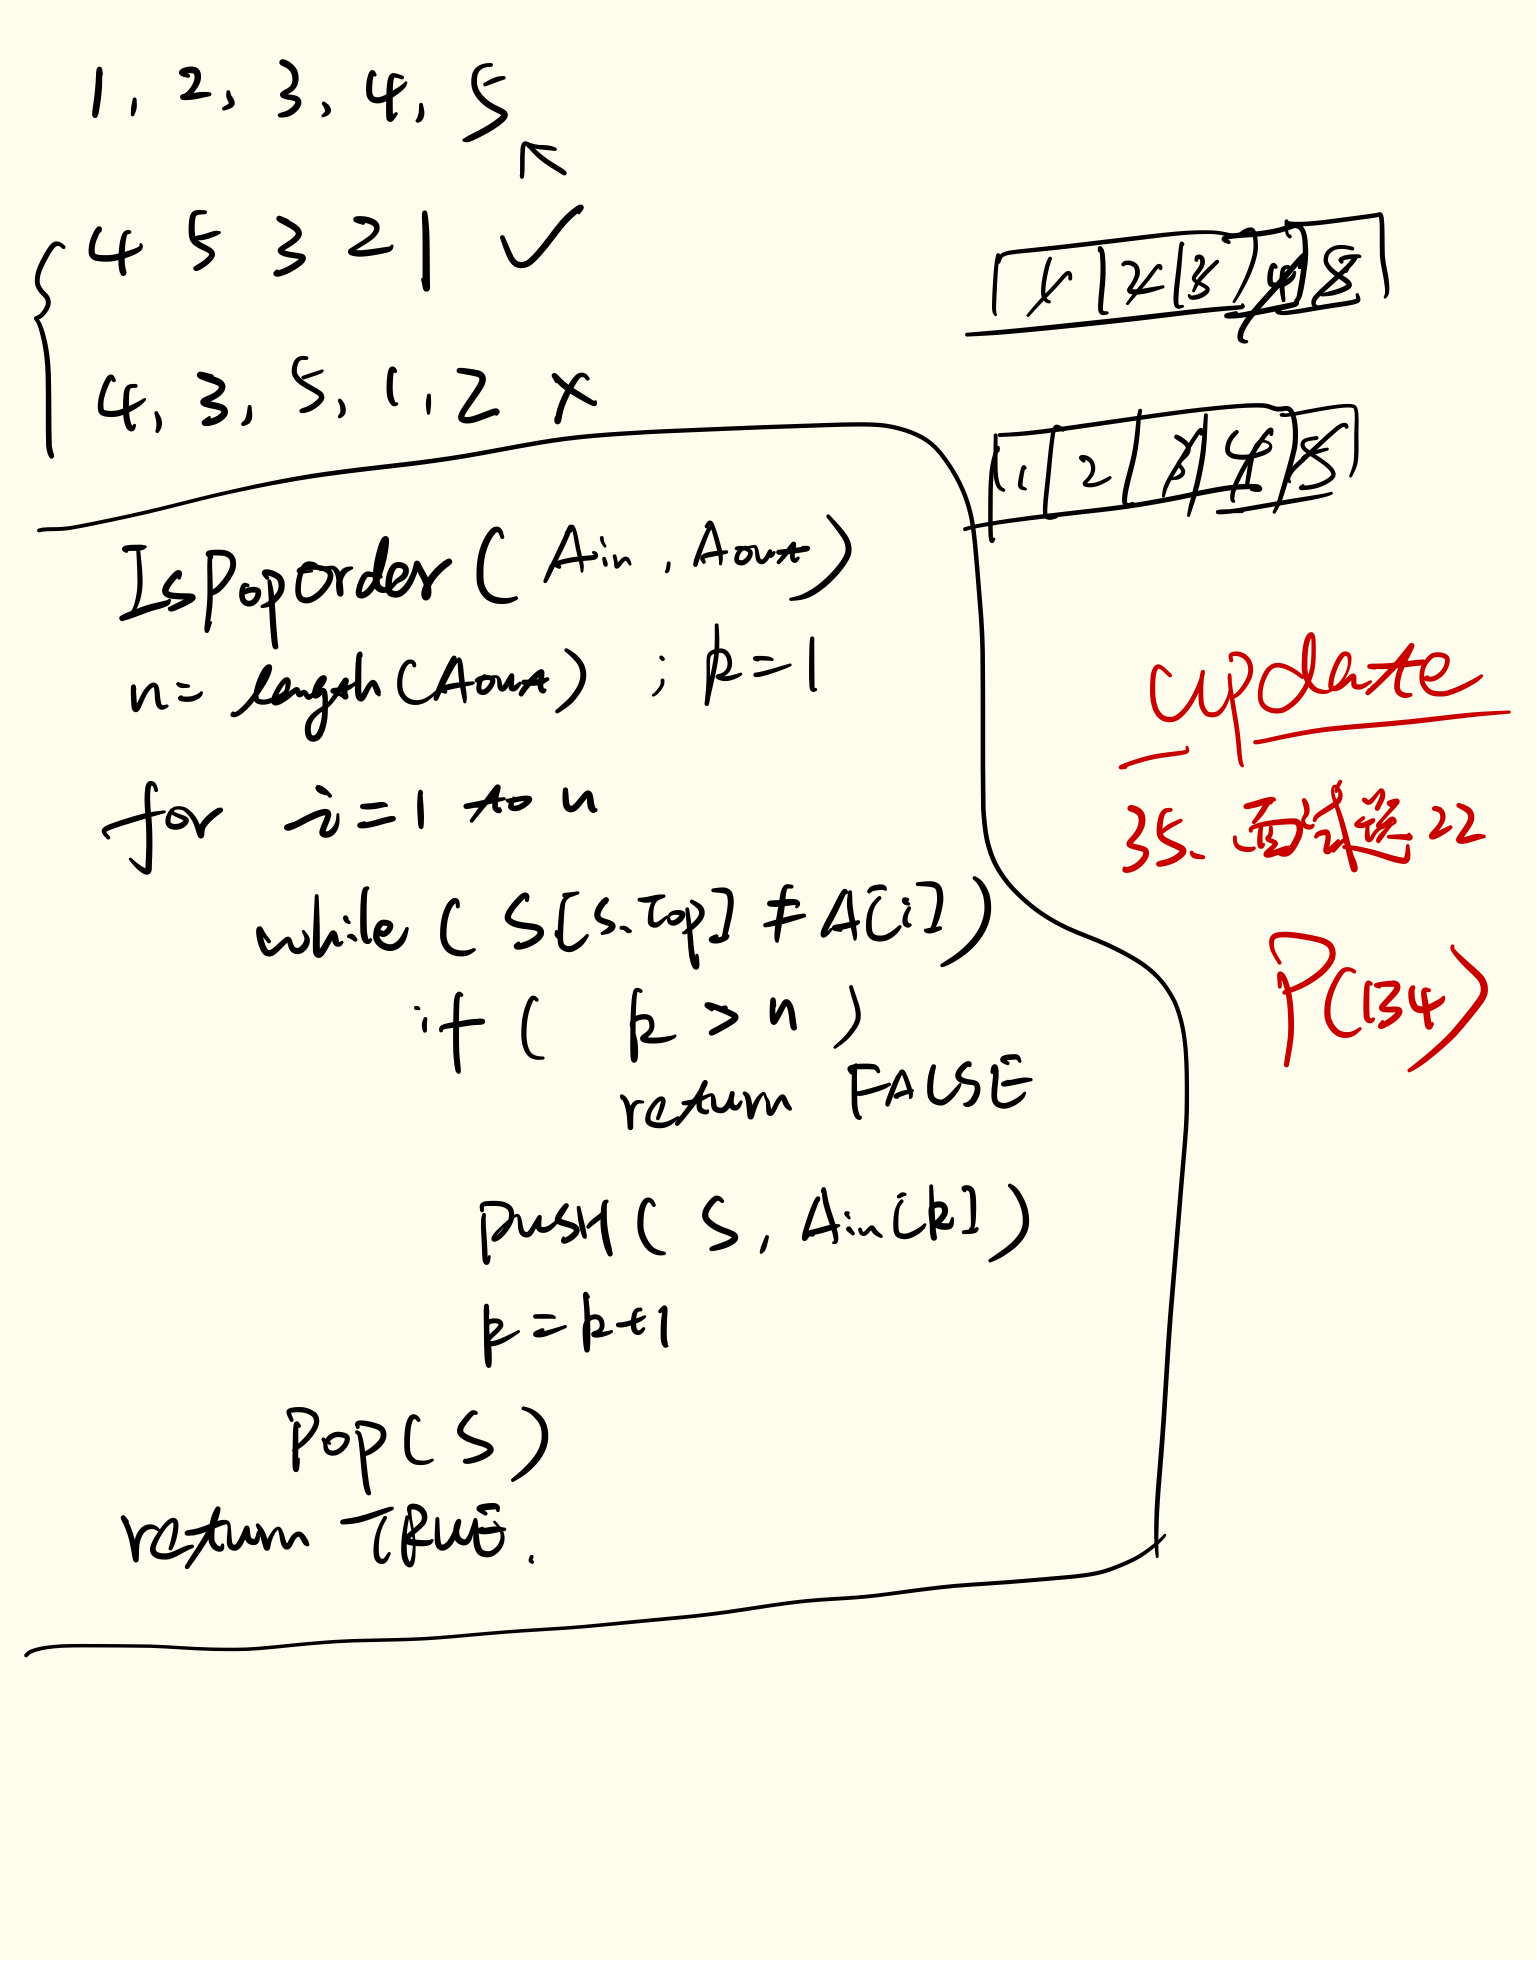 1, 2, 3, 4, 5
4 5 3 2 1 ✓
4, 3, 5, 1, 2 ×
1 2 3 4 5
1 2 3 4 5
IsPopOrder(Ain, Aout)
n = length(Aout) ; k=1
for i=1 to n
while (S[S.Top] ≠ A[i])
if ( k > n )
return FALSE
PUSH(S, Ain[k])
k = k+1
Pop(S)
return TRUE.
update
35. 面试题22
P(134)